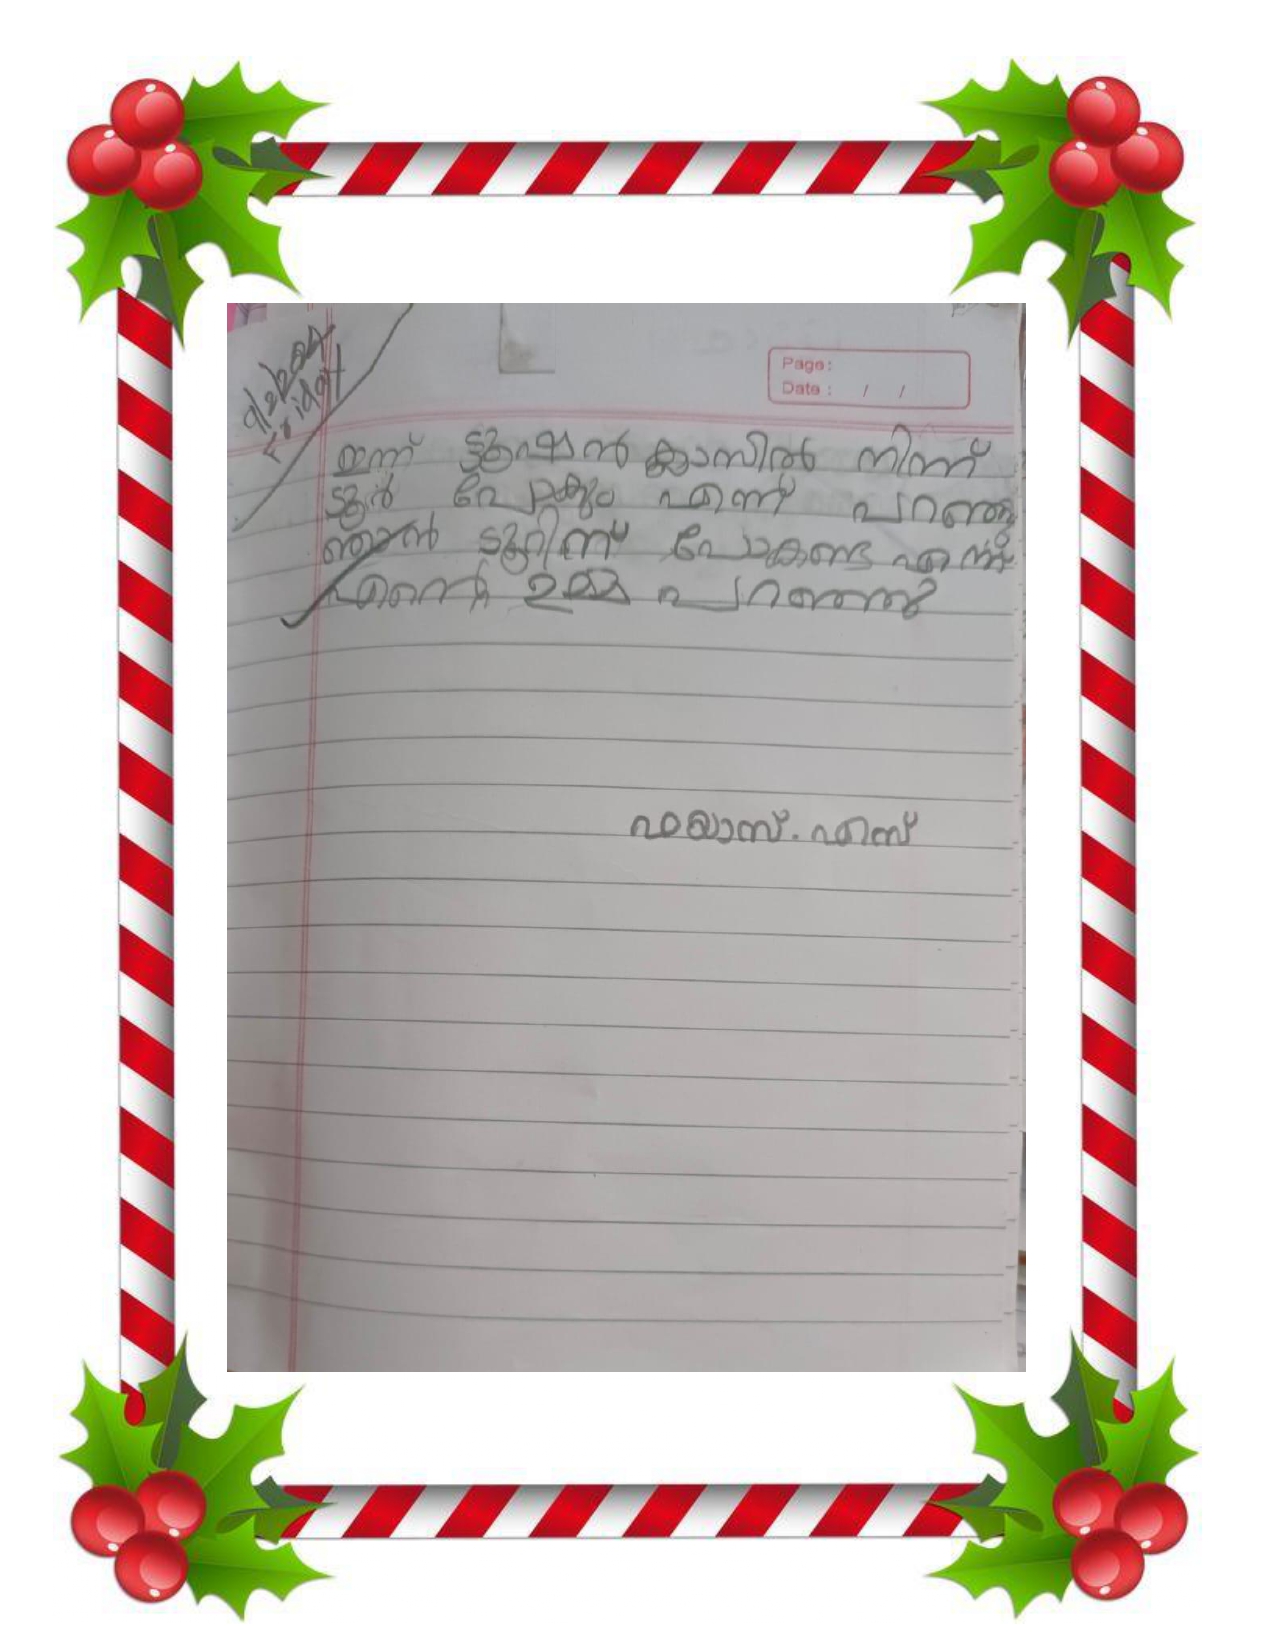 9/2/2024
Friday
Page:
Date : / /
ഇന്ന് ട്യൂഷൻ ക്ലാസിൽ നിന്ന്
ടൂർ പോകും എന്ന് പറഞ്ഞു
ഞാൻ ടൂറിന് പോകണ്ട എന്ന്
എന്റെ ഉമ്മ പറഞ്ഞു
ഫയാസ്. എസ്